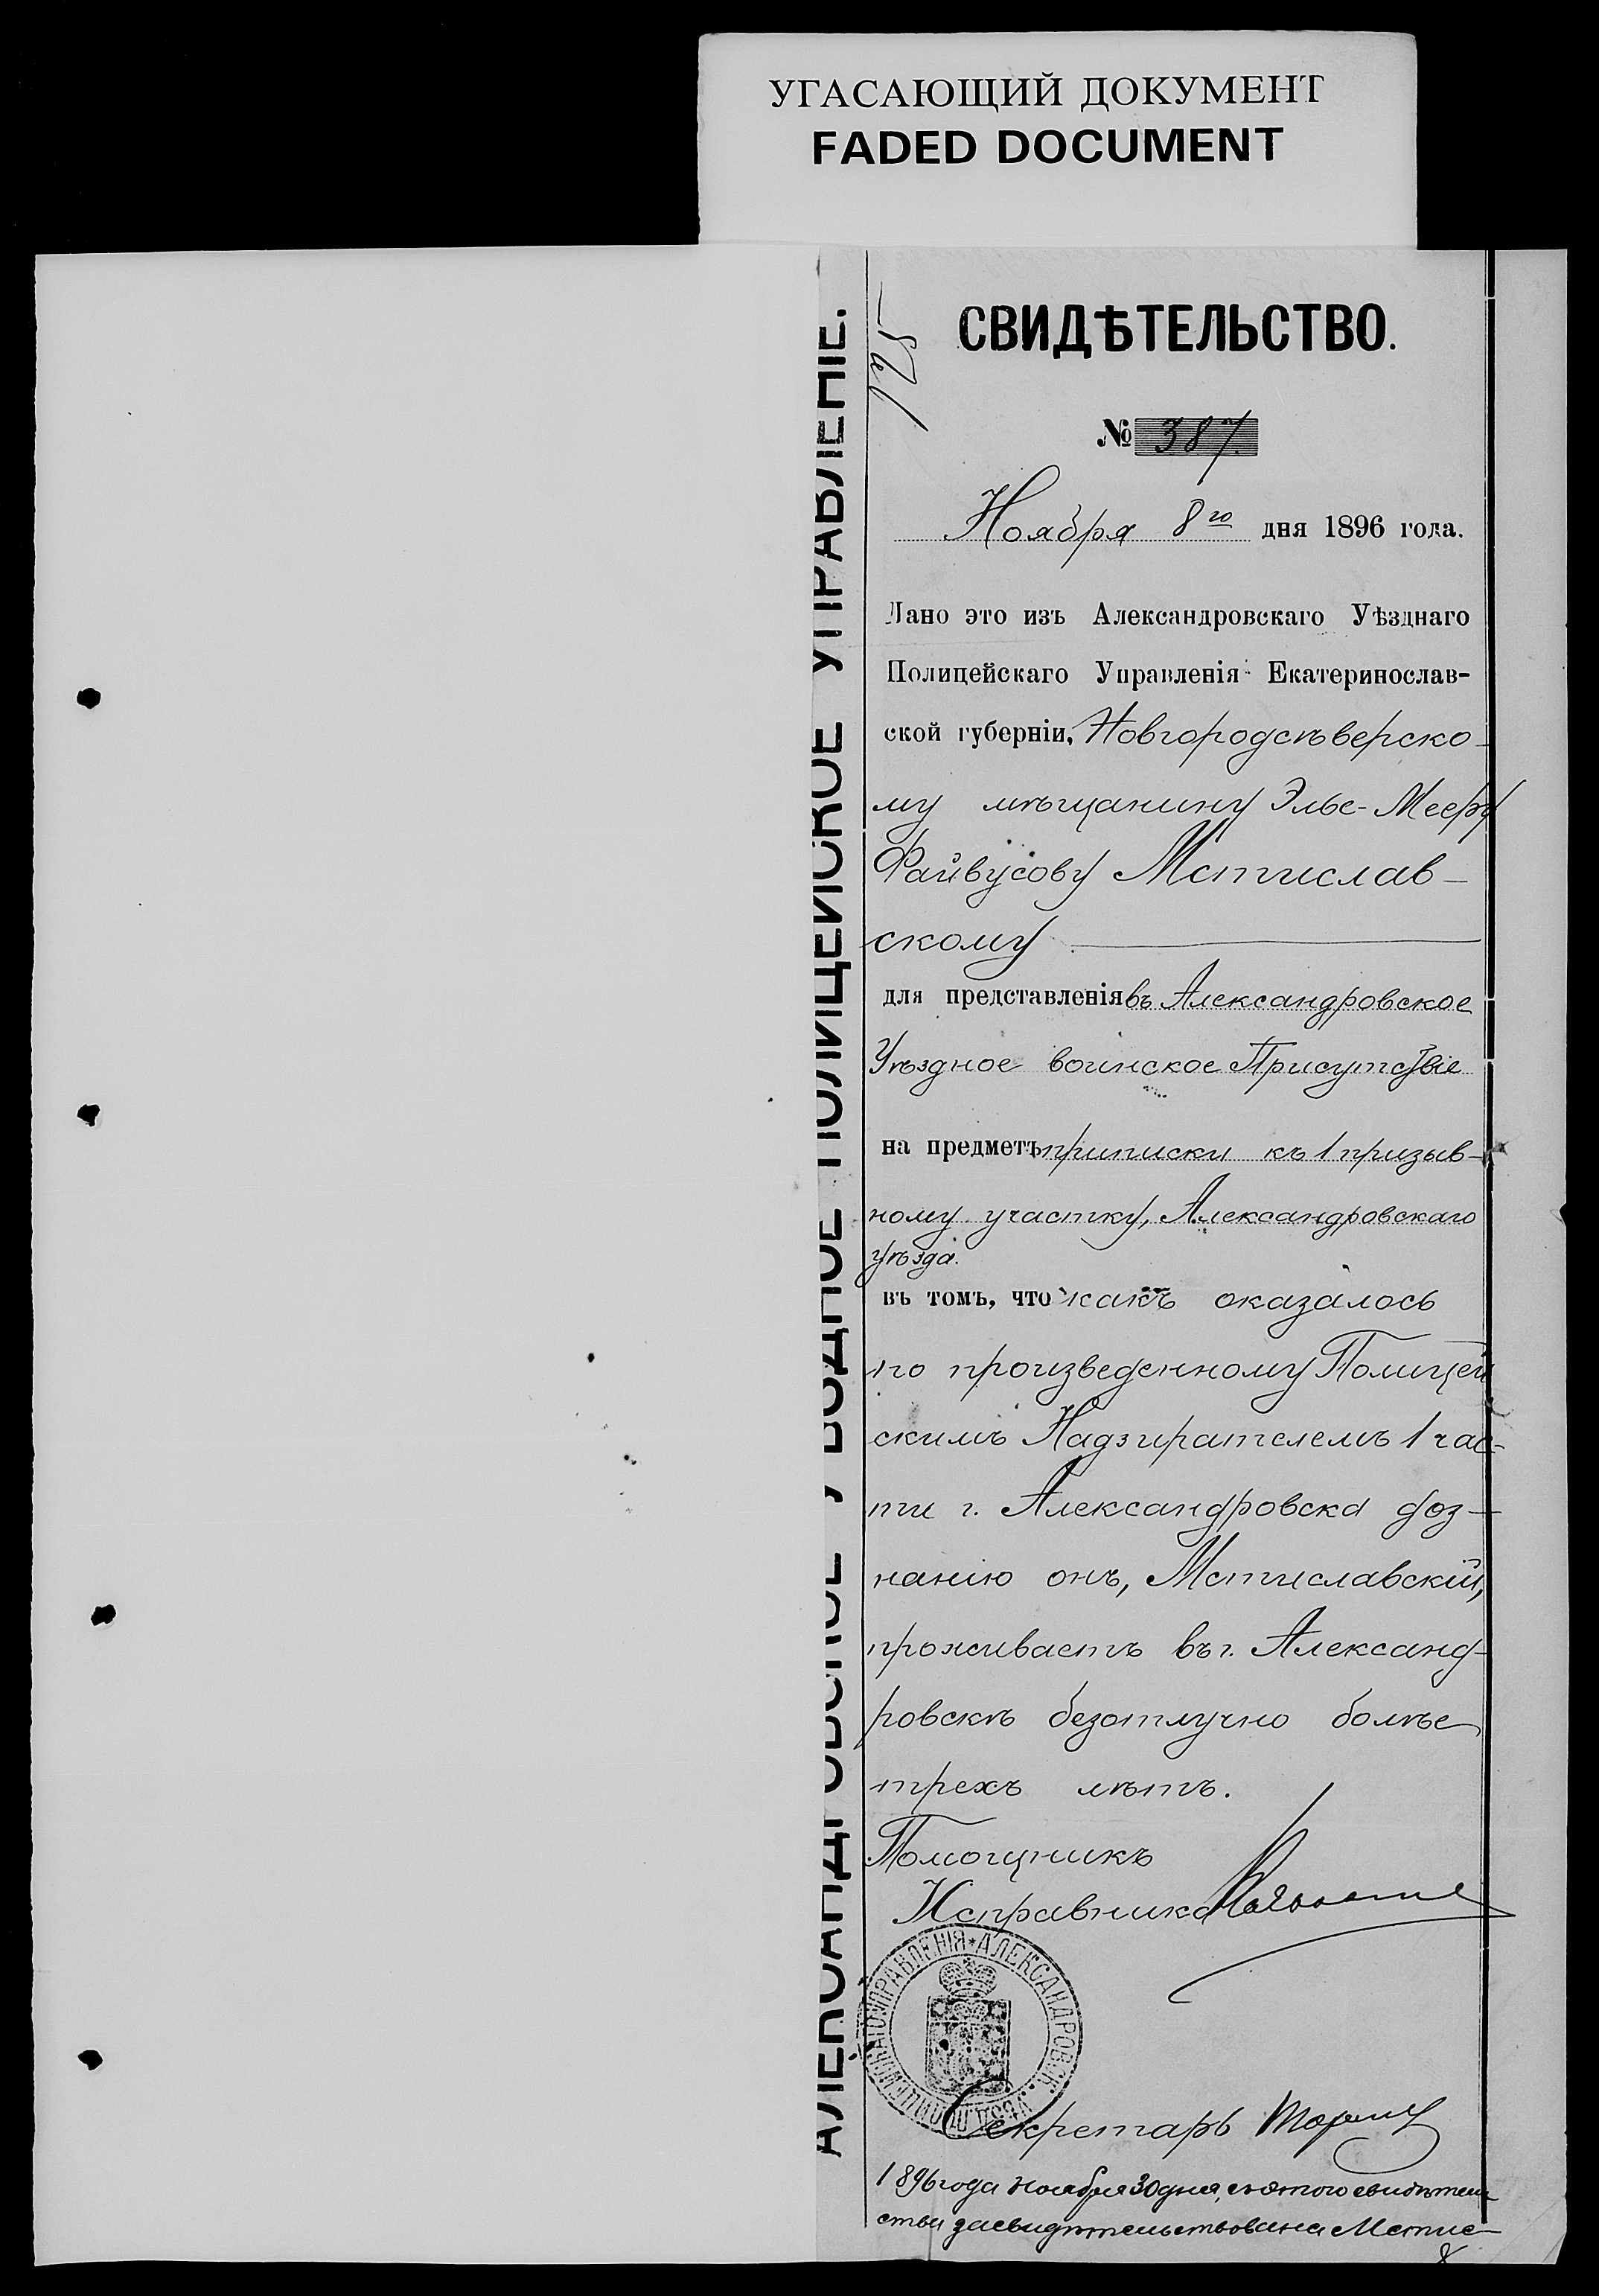 УГАСАЮЩИЙ ДОКУМЕНТ
FADED DOCUMENT
АЛЕКСАНДРОВСКОЕ УѢЗДНОЕ ПОЛИЦЕЙСКОЕ УПРАВЛЕНІЕ.
СВИДѢТЕЛЬСТВО.
№ 387.
Ноября 8го дня 1896 года.
Дано это изъ Александровскаго Уѣзднаго
Полицейскаго Управленія Екатеринослав-
ской губерніи, Новгородсѣверско-
му мѣщанину Элье-Мееру
Файвусову Мстислав-
скому
для представленія въ Александровское
Уѣздное воинское Присутствіе
на предметъ приписки къ 1 призыв-
ному участку, Александровскаго
уѣзда.
въ томъ, что какъ оказалось
по произведенному Полицей
скимъ Надзирателемъ 1 час-
ти г. Александровска доз-
нанію онъ, Мстиславскій,
проживаетъ въ г. Александ-
ровскѣ безотлучно болѣе
трехъ лѣтъ.
Помощникъ
Исправника
УПРАВЛЕНІЯ * АЛЕКСАНДРОВСК.
Секретарь
1896 года ноября 30 дня, съ этого свидѣтель
ства засвидѣтельствована Мстис-